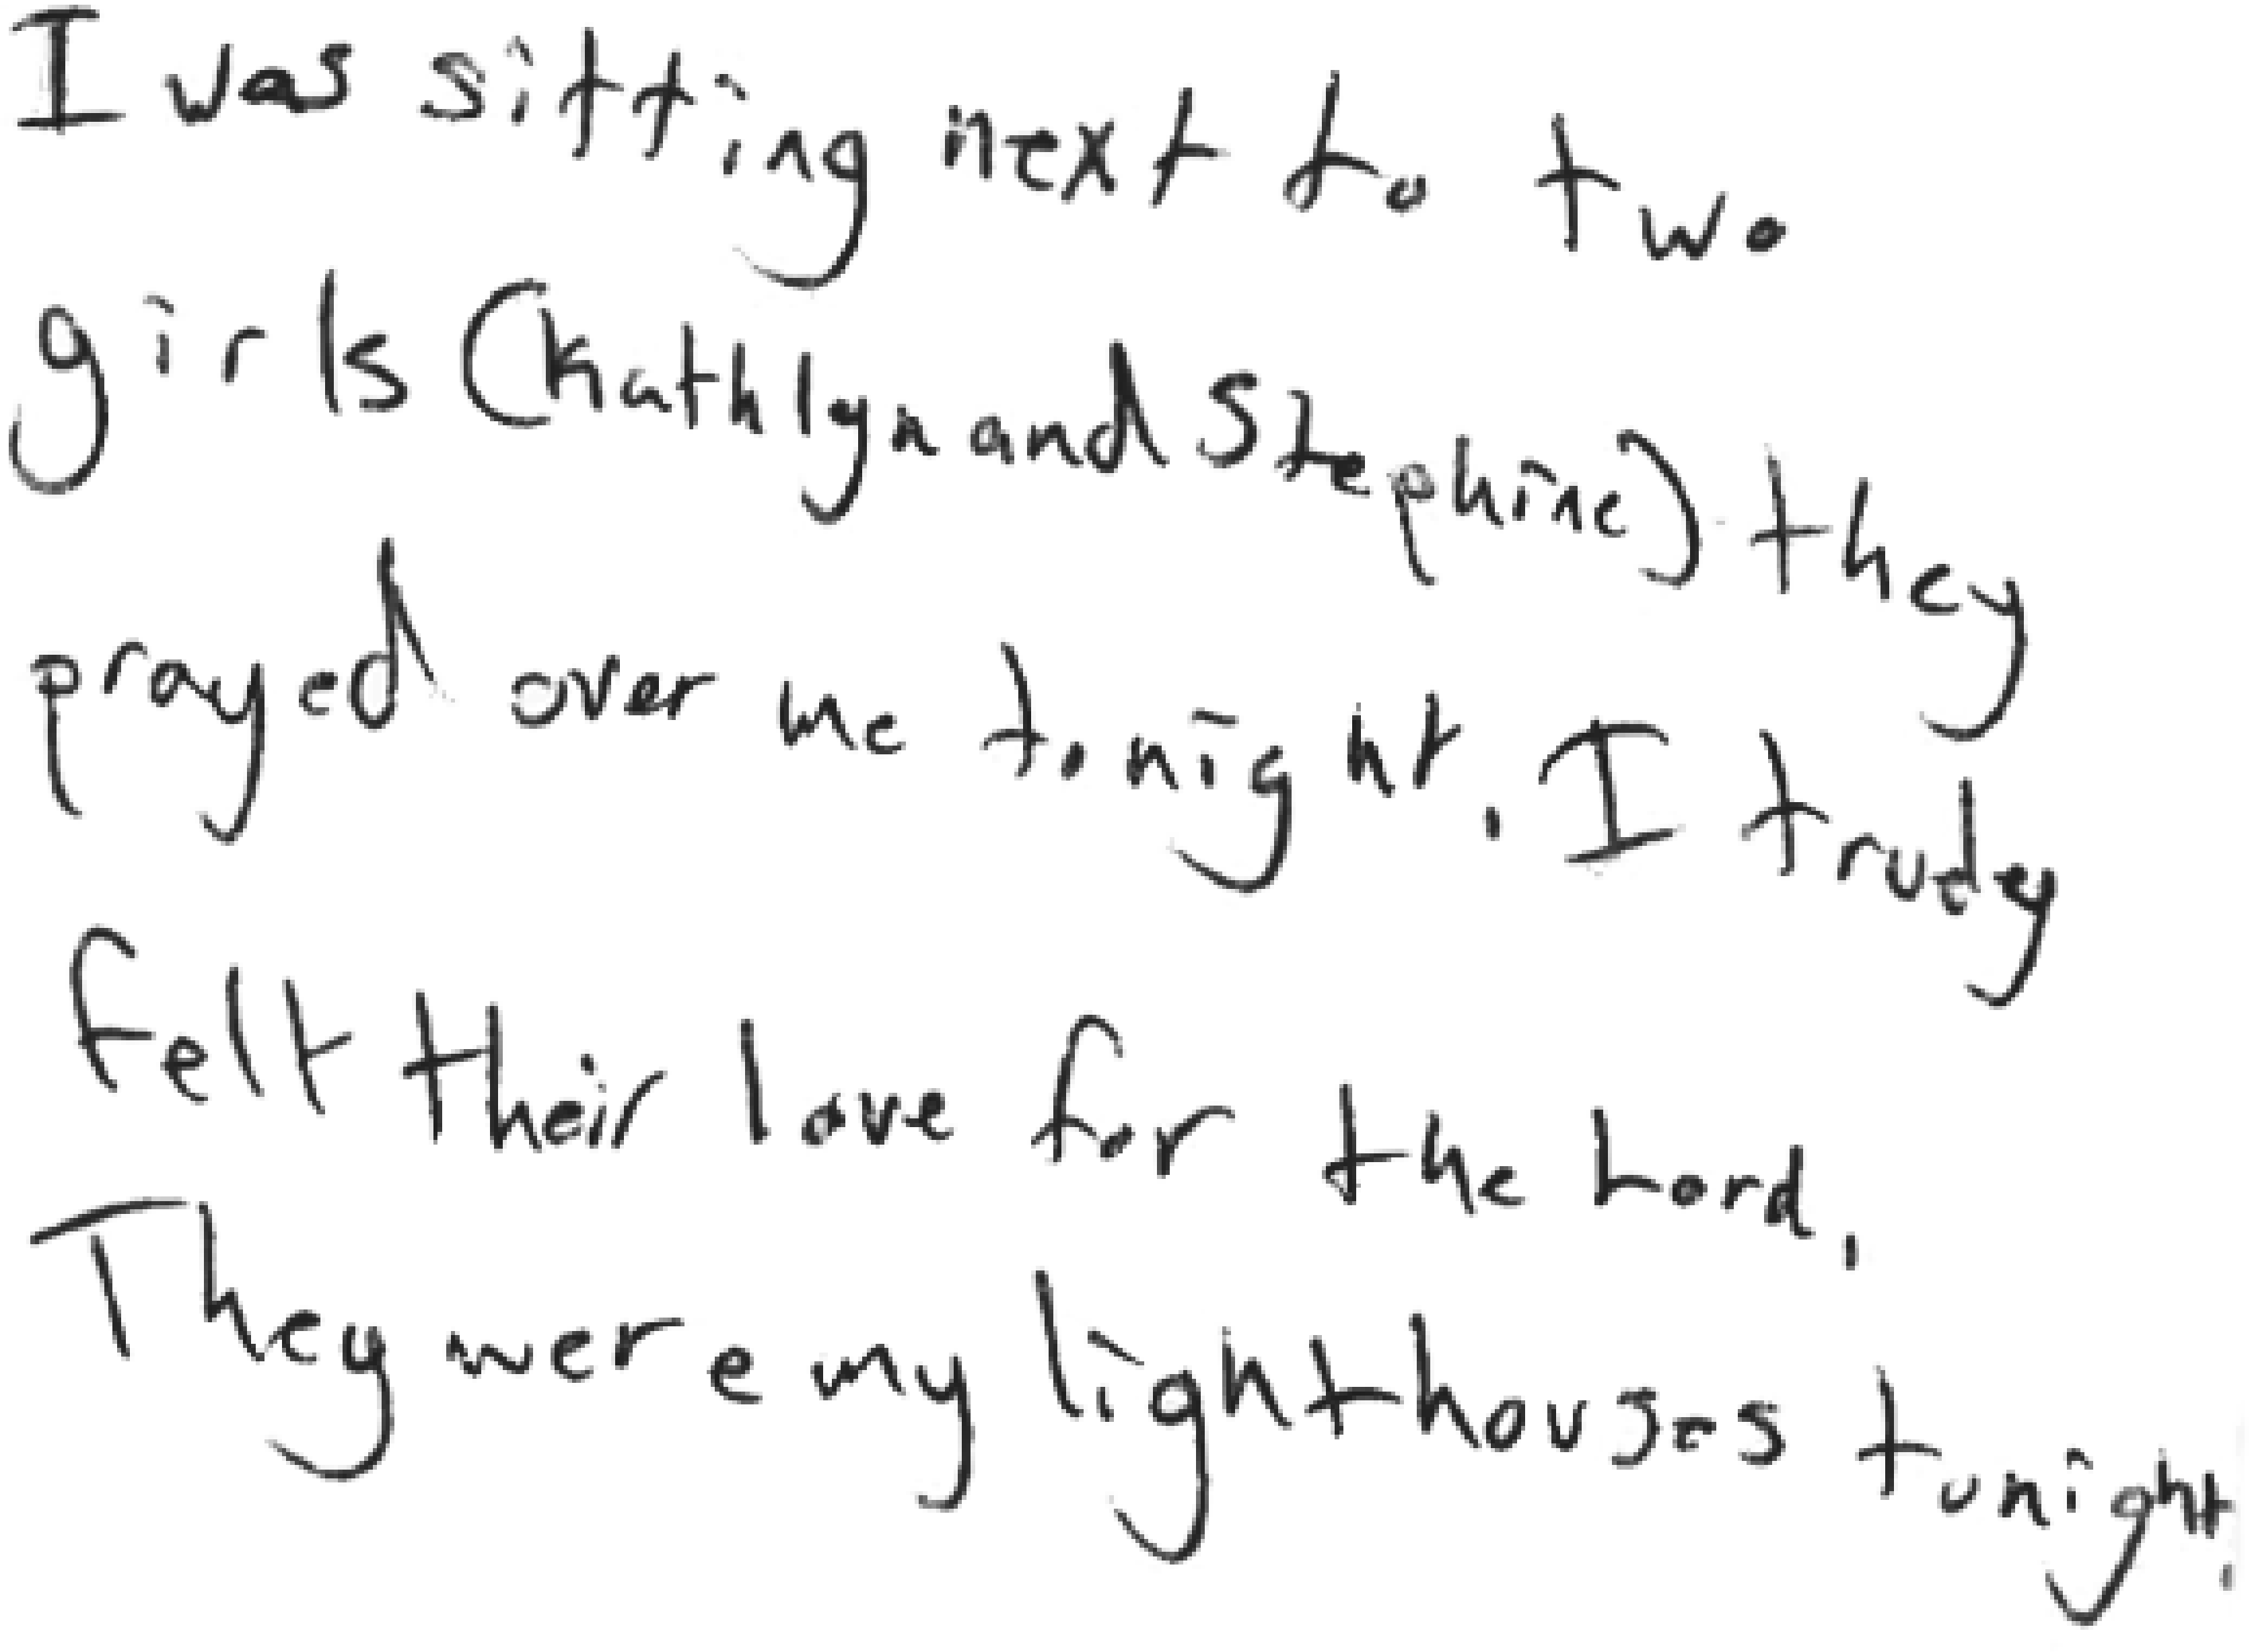 I was sitting next to two
girls (Kathlyn and Stephine) they
prayed over me tonight. I trudey
felt their love for the Lord.
They were my lighthouses tonight.